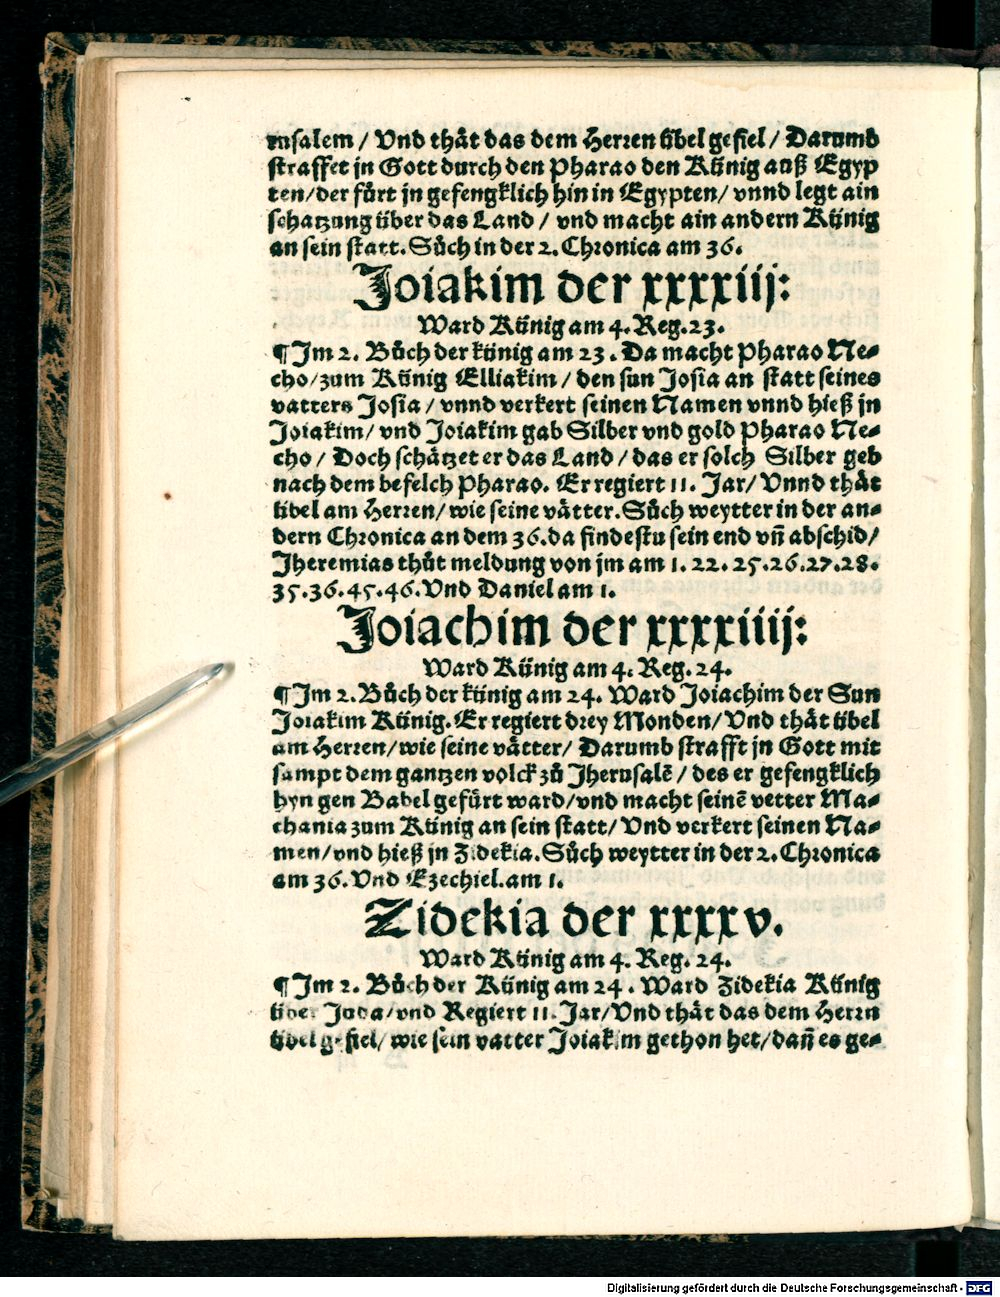 rusalem / Vnd thåt das dem Herren übel gefiel / Darumb
straffet jn Gott durch den Pharao den Künig auß Egyp
ten/der fůrt jn gefengklich hin in Egypten/ vnnd legt ain
schatzung über das Land / vnd macht ain andern Künig
an sein statt. Sůch in der 2. Chronica am 36.
Joiakim der xxxxiij:
Ward Künig am 4. Reg. 23.
¶Jm 2. Bůch der künig am 23. Da macht Pharao Ne⸗
cho/zum Künig Elliakim / den sun Josia an statt seines
vatters Josia / vnnd verkert seinen Namen vnnd hieß jn
Joiakim/ vnd Joiakim gab Silber vnd gold Pharao Ne⸗
cho / Doch schåtzet er das Land / das er solch Silber geb
nach dem befelch Pharao. Er regiert 11. Jar/ Vnnd thåt
übel am Herren/ wie seine våtter. Sůch weytter in der an⸗
dern Chronica an dem 36. da findestu sein end vñ abschid/
Jheremias thůt meldung von jm am 1. 22. 25. 26. 27. 28.
35. 36. 45. 46. Vnd Daniel am 1.
Joiachim der xxxxiiij:
Ward Künig am 4. Reg. 24.
¶Jm 2. Bůch der künig am 24. Ward Joiachim der Sun
Joiakim Künig. Er regiert drey Monden/ Vnd thåt übel
am Herren/wie seine våtter/ Darumb strafft jn Gott mit
sampt dem gantzen volck zů Jherusalē / des er gefengklich
hyn gen Babel gefürt ward/vnd macht seinē vetter Ma⸗
thania zum Künig an sein statt/ Vnd verkert seinen Na⸗
men/vnd hieß jn Zidekia. Sůch weytter in der 2. Chronica
am 36. Vnd Ezechiel. am 1.
Zidekia der xxxxv.
Ward Künig am 4. Reg. 24.
¶Jm 2. Bůch der Künig am 24. Ward Zidekia Künig
über Juda/vnd Regiert 11. Jar/Vnd thåt das dem Herrn
übel gefiel/ wie sein vatter Joiakim gethon het/dañ es ge⸗
Digitalisierung gefördert durch die Deutsche Forschungsgemeinschaft - DFG